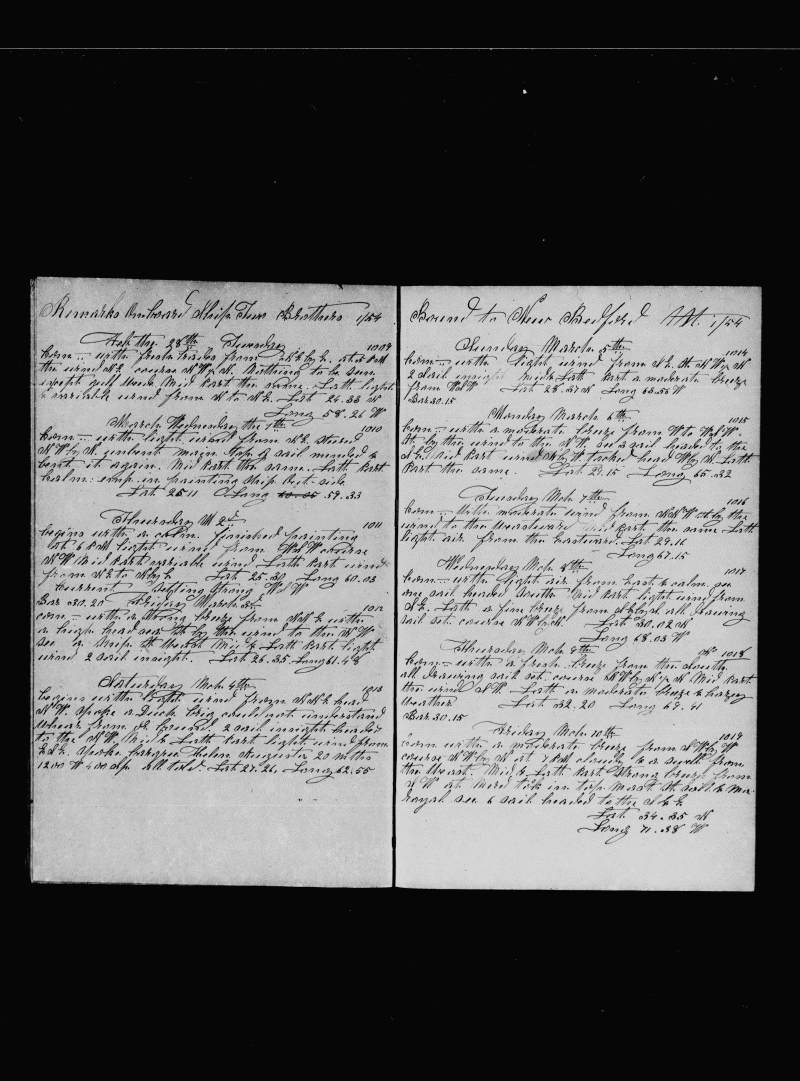 Remarks Onboard Ship Two Brothers 1/54
Feb thy. 28th Tuesday
1009
com — with fresh trades from NE by E. at 5 PM
the wind NE course NW by N. Nothing to be seen
Mid Part the same. Latt light
& variable wind from N to NE. Lat 24.33 N
Long 58.26 W
March Wednesday the 1st
1010
com — with light wind from NE steered
NW by N. unbent main top g sail mended &
bent it again. Mid Part the same. Latt Part
calm: emp. in painting Ship Out side
Lat 25 11 Long 59.33
Thursday M 2d
1011
begins with a calm. finished painting
at 6 PM light wind from course
NW Mid Part variable wind Latt Part wind
from NE to N by E Lat 25.30 Long 60.03
Current Setting Strong
Bar 30.20 Friday March 3d
1012
com — with a strong breeze from with
a high head sea by the wind to the NW
see a Ship Mid & Latt Part light
wind 2 sail insight. Lat 26.35 Long 61.48
Saturday Mch 4th
1013
begins with light wind from NNE head
NW. Spoke a Brig could not understand
where from or bound. 2 sail insight headed
to the NW. Mid & Latt Part light wind from
Spoke Helen Augusta 20 mths
1200 W 400 Sp. all told. Lat 27.26. Long 62.55
Bound to New Bedford 1/54
Sunday March 5th
1014
com — with light wind from NE. NW by N
2 Sail insight Mid & Latt Part a moderate breeze
from Lat 28.37 N Long 63.55 W
Bar 30.15
Monday March 6th
1015
com — with a moderate breeze from W to
by the wind to the NW. See a sail headed to the
Mid Part wind tacked head Latt
Part the same. Lat 29.15 Long 65.32
Tuesday Mch 7th
1016
com — with moderate wind from by the
wind to the Westward Mid Part the same Latt
light air from the Eastward. Lat 29.16
Long 67.15
Wednesday Mch 8th
1017
com — with light air from East & calm. see
one sail headed South Mid Part light wind from
Latt a fine breeze from all drawing
sail set. course NW by N. Lat 30.02 N
Long 68.03 W
Thursday Mch 9th
1018
com — with a fresh breeze from the South
all drawing sail set. course Mid Part
the wind SW. Latt a moderate breeze & hazey
Weather Lat 32.20 Long 69.41
Bar 30.15
Friday Mch 10th
1019
com with a moderate breeze from
course NW by N at 7 PM cloudy & a swell from
the West. Mid & Latt Part Strong breeze from
SW took in top Mast St sail & Main
Royal see 6 sail headed to the S & E
Lat 34.35 N
Long 71.38 W